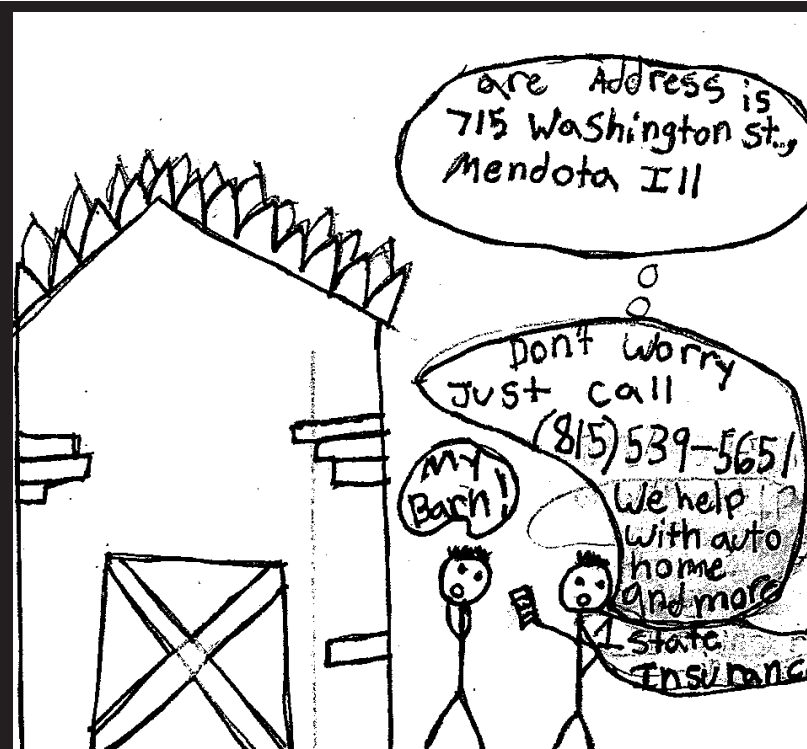 are Address is
715 Washington St.,
Mendota Ill
Don't Worry
Just call
(815) 539-5651
We help
with auto
home
and more
My
Barn!
1 State
Insuranc